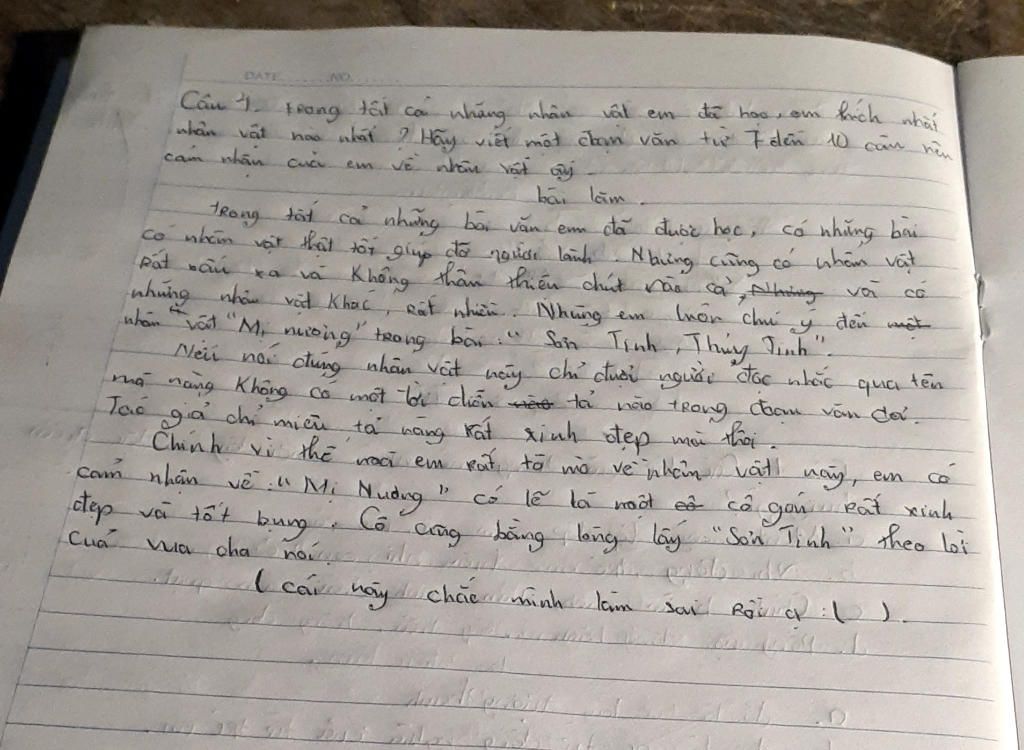 DATE NO.
Câu 1. trong tất cả những nhân vật em đã học, em thích nhất
nhân vật nào nhất? Hãy viết một đoạn văn từ 7 đến 10 câu nên
cảm nhận của em về nhân vật ấy.
bài làm.
trong tất cả những bài văn em đã được học, có những bài
có nhân vật thật tốt giúp đỡ người lành. Nhưng cũng có nhân vật
Rất xấu xa và Không thân thiện chút nào cả, Nhưng và có
những nhân vật Khác, Rất nhiều. Nhưng em luôn chú ý đến một
nhân vật "Mị nương" trong bài: "Sơn Tinh, Thủy Tinh".
Nếu nói đúng nhân vật này chỉ được người đọc nhắc qua tên
mà nàng Không có một lời diễn nào tả nào trong đoạn văn đó.
Tác giả chỉ miêu tả nàng rất xinh đẹp mà thôi.
Chính vì thế mà em rất tò mò về nhân vật này, em có
cảm nhận về: "Mị Nương" có lẽ là một cô cô gái rất xinh
đẹp và tốt bụng. Cô cũng bằng lòng lấy "Sơn Tinh" theo lời
của vua cha nói.
(cái này chắc mình làm sai Rồi ạ :( ).